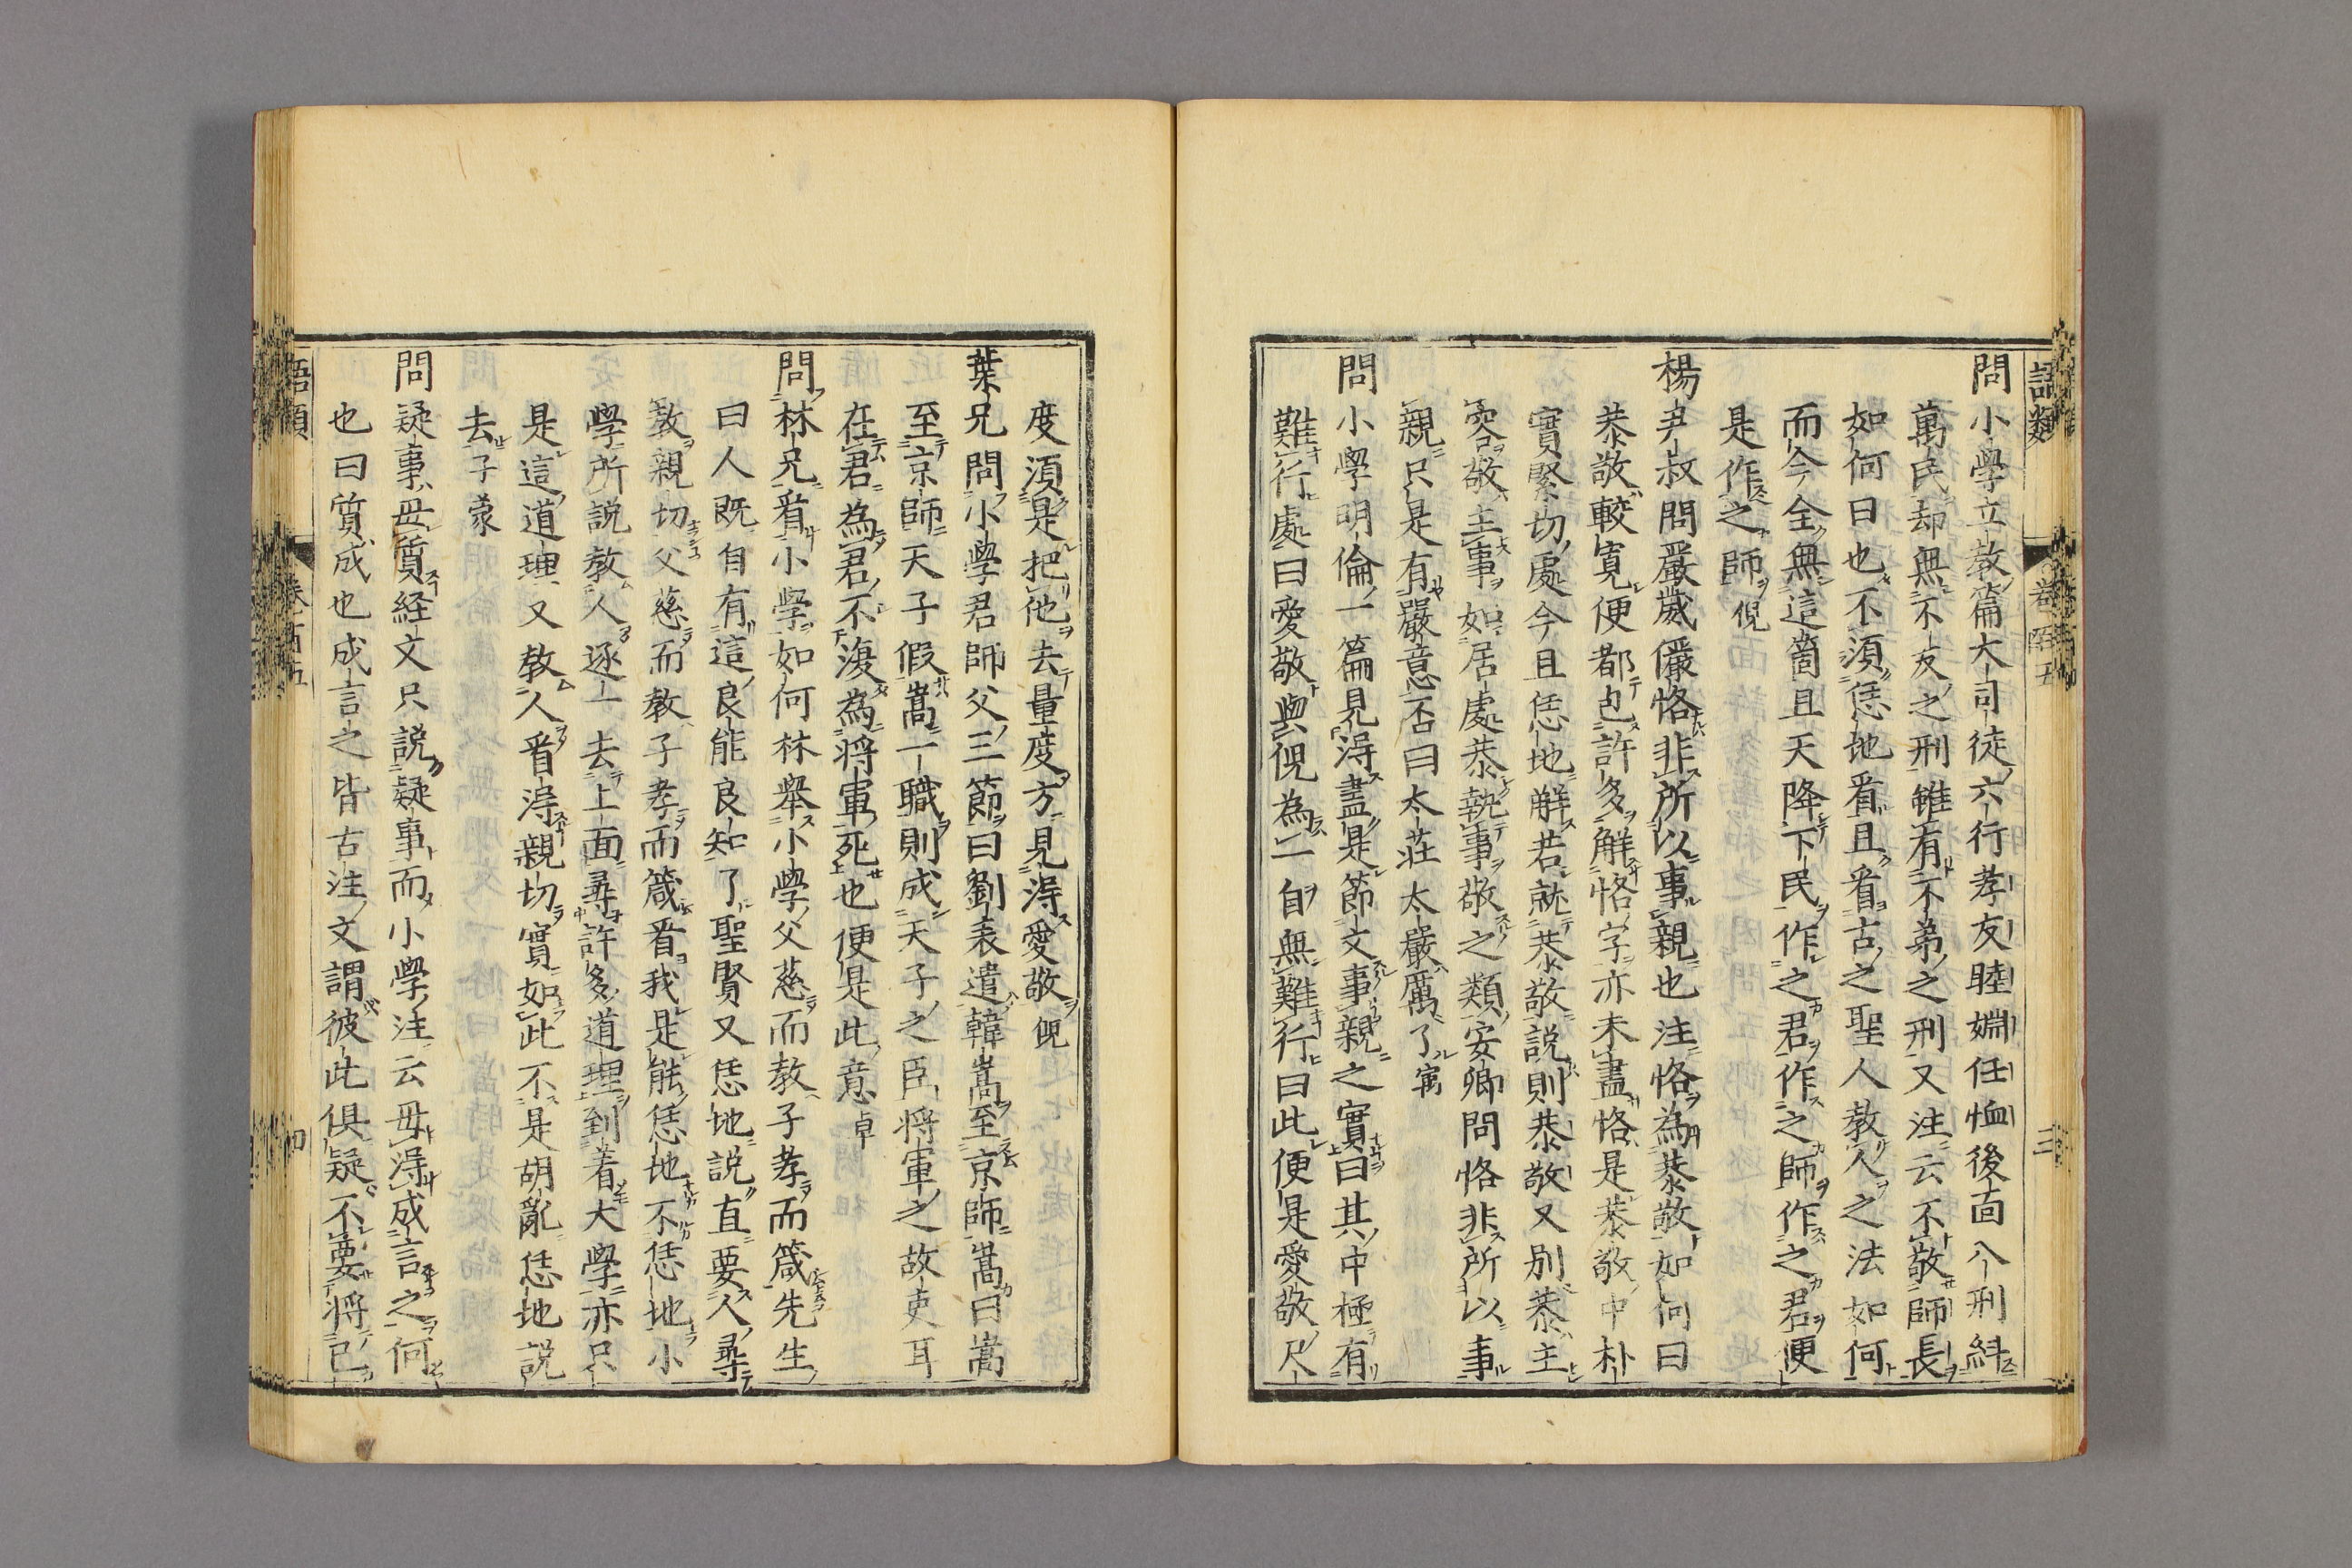 語類
卷一百五
三
問小學立教篇大司徒六行孝友睦婣任恤後面八刑糾
萬民却無不友之刑雖有不弟之刑又注云不敬師長
如何曰也不須恁地看且看古之聖人教人之法如何
而今全無這箇且天降下民作之君作之師作之君便
是作之師 俔
楊尹叔問嚴威儼恪非所以事親也注恪為恭敬如何曰
恭敬較寬便都包許多解恪字亦未盡恪是恭敬中朴
實緊切處今且恁地解若就恭敬說則恭敬又別恭主
容敬主事如居處恭執事敬之類安卿問恪非所以事
親只是有嚴意否曰太莊太嚴厲了 㝢
問小學明倫一篇見淂盡是節文事親之實曰其中極有
難行處曰愛敬與俔為一自無難行曰此便是愛敬尺
度湏是把他去量度方見淂愛敬 俔
葉兄問小學君師父三節曰劉表遣韓嵩至京師嵩曰嵩
至京師天子假嵩一職則成天子之臣將軍之故吏耳
在君為君不復為将軍死也便是此意 卓
問林兄看小學如何林舉小學父慈而教子孝而箴先生
曰人既自有這良能良知了聖賢又恁地說直要人尋
教親切父慈而教子孝而箴看我是能恁地不恁地小
學所說教人逐一去上面尋許多道理到着大學亦只
是這道理又教人看淂親切實如此不是胡亂恁地說
去 子蒙
問疑事毋質経文只說疑事而小學注云毋淂成言之何
也曰質成也成言之皆古注文謂彼此俱疑不要将已
語類
卷一百五
四